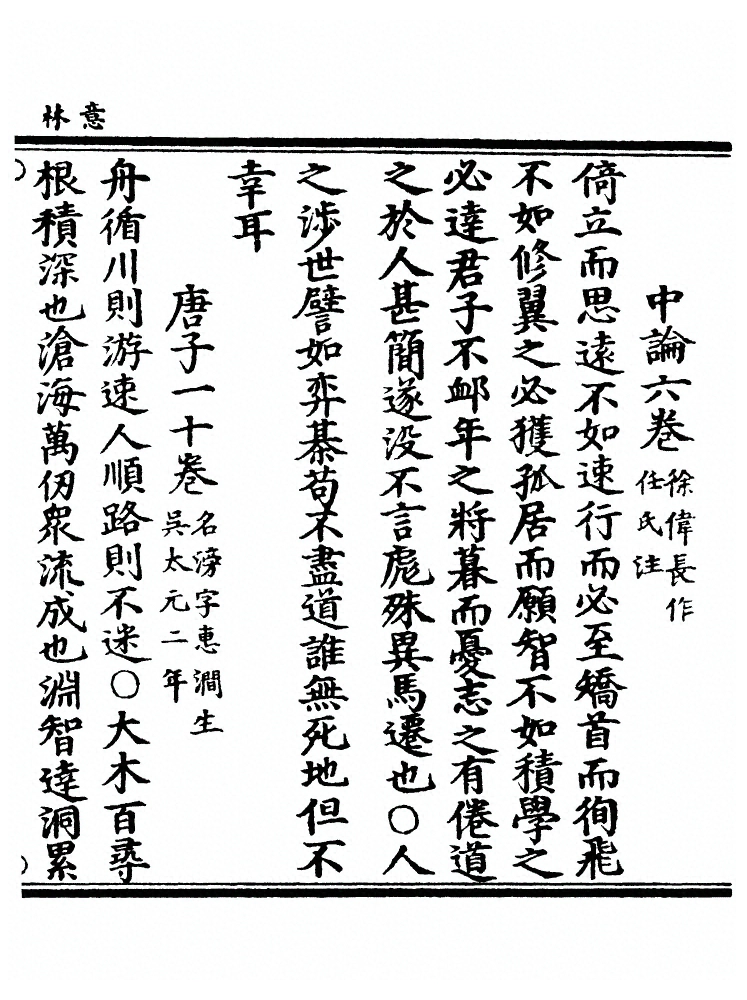 意林
中論六卷
徐偉長作
任氏注
倚立而思遠不如速行而必至矯首而徇飛
不如修翼之必獲孤居而願智不如積學之
必達君子不䘏年之將暮而憂志之有倦道
之於人甚簡遂没不言彪殊異馬遷也〇人
之涉世譬如弈棊苟不盡道誰無死地但不
幸耳
唐子一十卷
名滂字惠潤生
吳太元二年
舟循川則游速人順路則不迷〇大木百尋
根積深也滄海萬仞衆流成也淵智達洞累